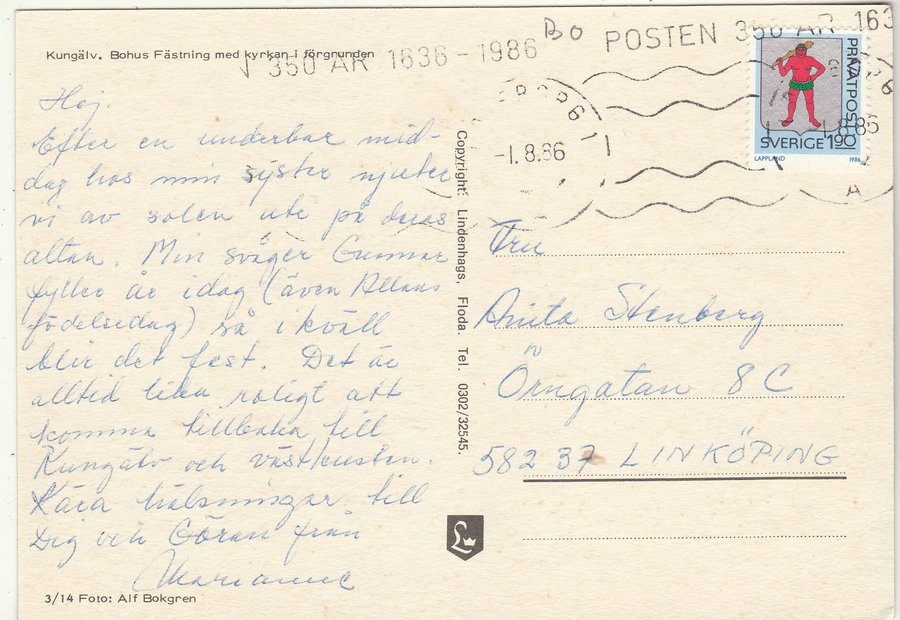 Kungälv. Bohus Fästning med kyrkan i förgrunden
350 ÅR 1636-1986
Bo
POSTEN 350 ÅR 163
-1.8.86
PRIVATPOST
SVERIGE 1.90
LAPPLAND 1986
A
Hej.
Efter en underbar mid-
dag hos min syster njuter
vi av solen ute på deras
altan. Min svåger Gunnar
fyller år idag (även Allans
födelsedag) så i kväll
blir det fest. Det är
alltid lika roligt att
komma tillbaka till
Kungälv och västkusten.
Kära hälsningar till
Dig och Göran från
Marianne
3/14 Foto: Alf Bokgren
Copyright: Lindenhags, Floda. Tel. 0302/32545.
L
Fru
Anita Stenberg
Örngatan 8C
582 37 LINKÖPING